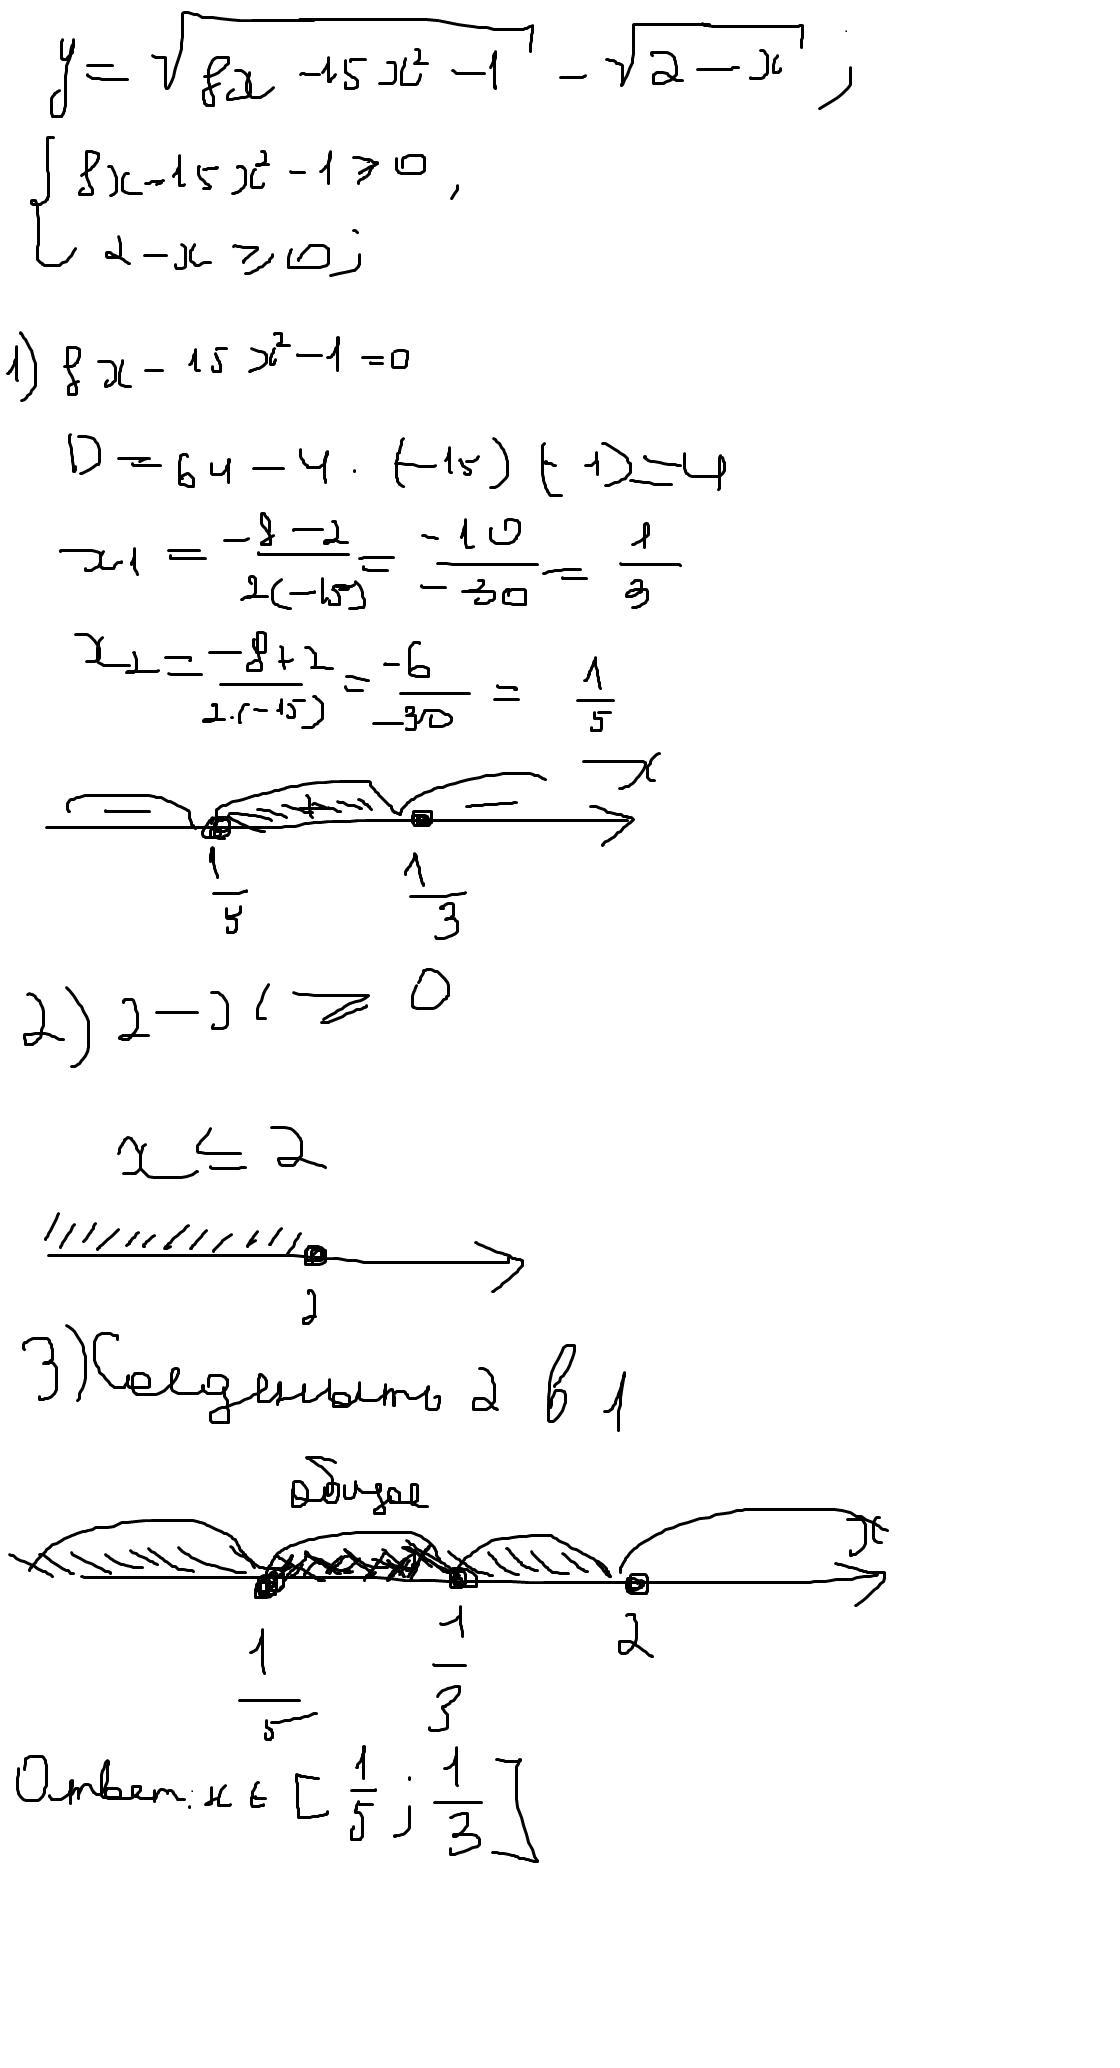 y = √(8x − 15x² − 1) − √(2 − x);
{ 8x − 15x² − 1 ≥ 0,
2 − x ≥ 0;
1) 8x − 15x² − 1 = 0
D = 64 − 4 · (−15)(−1) = 4
x1 = (−8 − 2)/(2(−15)) = (−10)/(−30) = 1/3
x2 = (−8 + 2)/(2·(−15)) = (−6)/(−30) = 1/5
− + − x
1/5 1/3
2) 2 − x ≥ 0
x ≤ 2
2
3) Соеденить 2 в 1
общее
x
1/5 1/3 2
Ответ: x ∈ [1/5; 1/3]